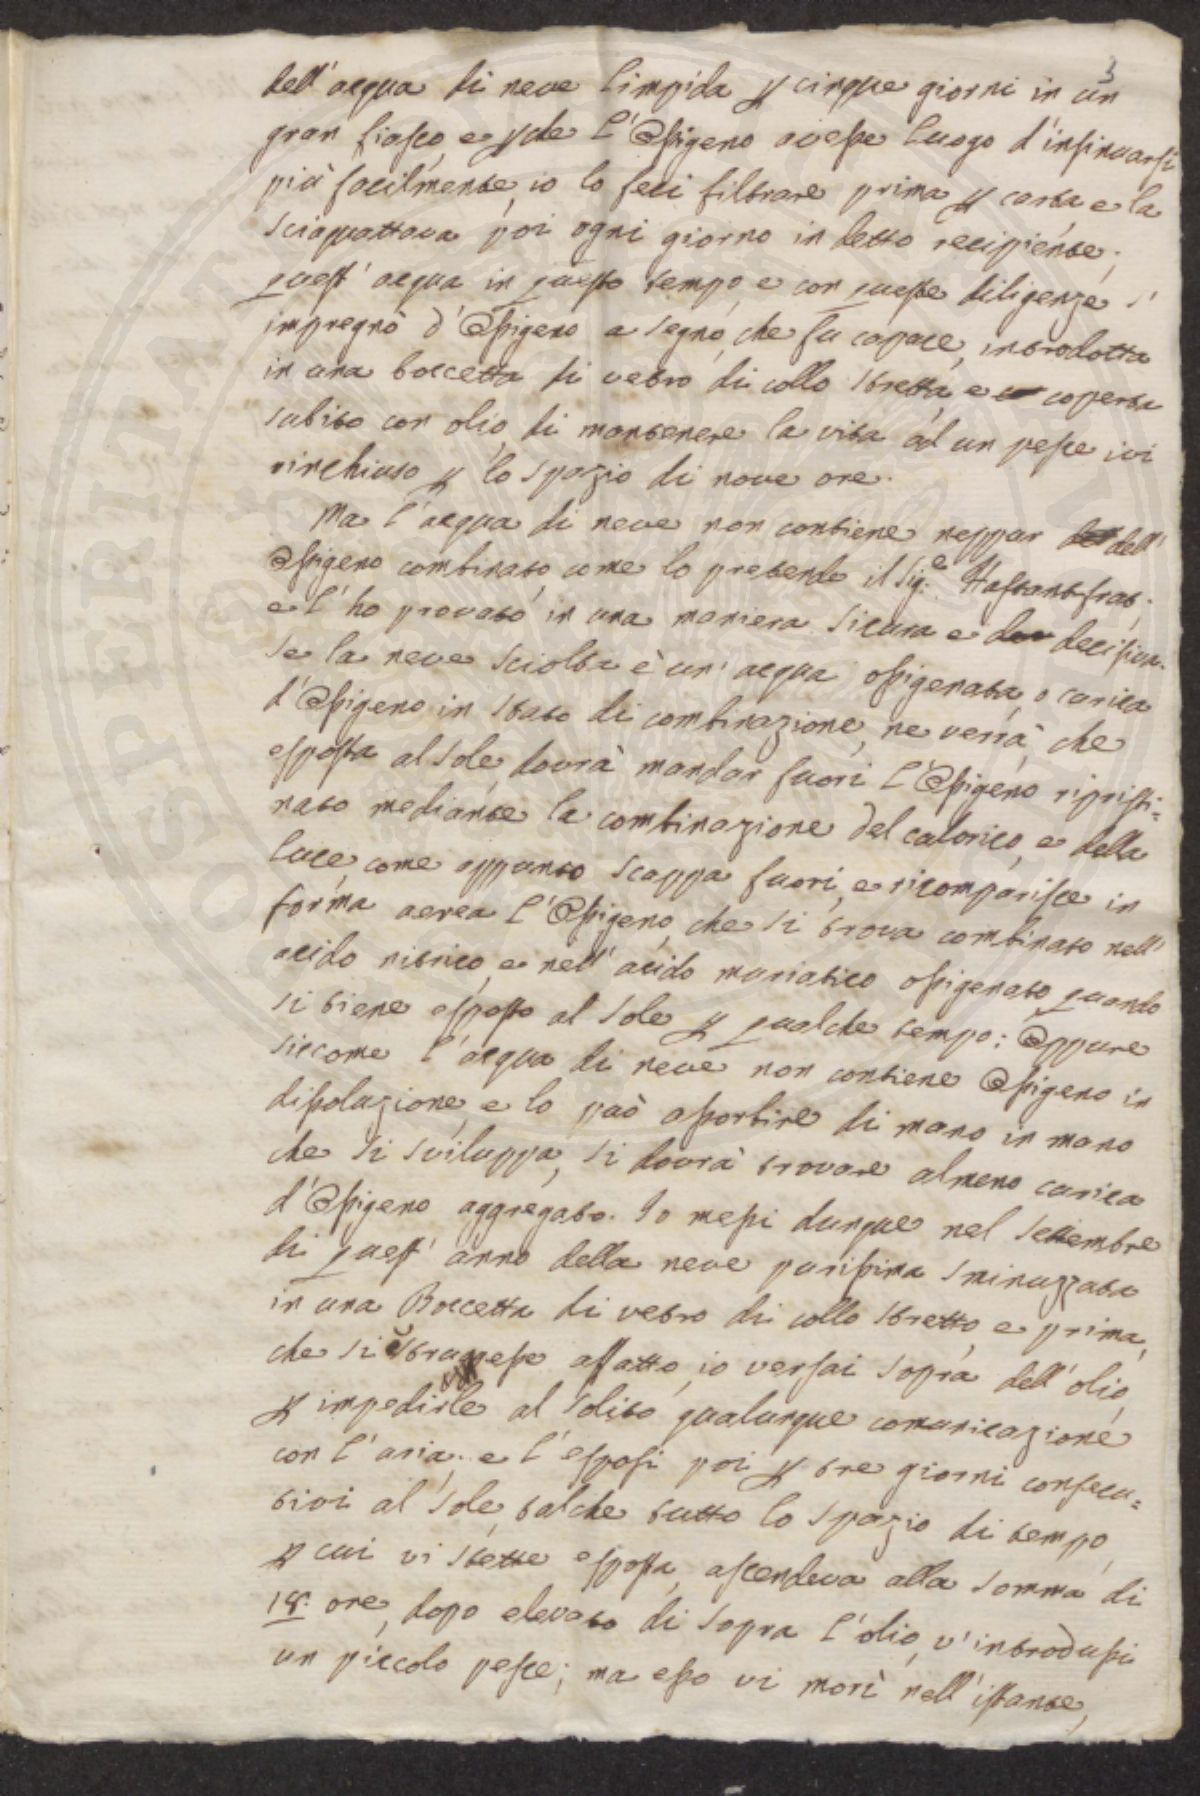 3
dell'acqua di neve limpida p cinque giorni in un
gran fiasco e pche l'Ossigeno avesse luogo d'insinuarsi
più facilmente, io lo feci filtrare prima p carta e la
sciaquattava poi ogni giorno in detto recipiente;
quest' acqua in questo tempo, e con queste diligenze s'
impregnò d'Ossigeno a segno, che fu capace, introdotta
in una boccetta di vetro di collo stretta, e coperta
subito con olio, di mantenere la vita ad un pesce ivi
rinchiuso p lo spazio di nove ore.
Ma l'acqua di neve non contiene neppur dell'
Ossigeno combinato come lo pretende il Sig.e Hassantfrat,
e l'ho provato in una maniera sicura e decisiva.
Se la neve sciolta è un' acqua ossigenata, o carica
d'Ossigeno in stato di combinazione, ne verrà, che
esposta al sole dovrà mandar fuori l'Ossigeno ripristi=
nato mediante la combinazione del calorico, e della
luce, come appunto scappa fuori, e ricomparisce in
forma aerea l'Ossigeno, che si trova combinato nell'
acido nitrico, e nell'acido muriatico ossigenato quando
si tiene esposto al sole p qualche tempo: Oppure
siccome l'acqua di neve non contiene Ossigeno in
dissoluzione, e lo può assorbire di mano in mano
che si sviluppa, si dovrà trovare almeno carica
d'Ossigeno aggregato. Io messi dunque nel Settembre
di quest' anno della neve purissima sminuzzata
in una Boccetta di vetro di collo stretto, e prima,
che si struggesse affatto, io versai sopra dell'olio,
p impedirle al solito qualunque comunicazione
con l'aria; e l'esposi poi p tre giorni consecu=
tivi al sole, talche tutto lo spazio di tempo,
p cui vi stette esposta, ascendeva alla somma di
18. ore, dopo elevato di sopra l'olio, v'introdussi
un piccolo pesce; ma esso vi morì nell'istante,